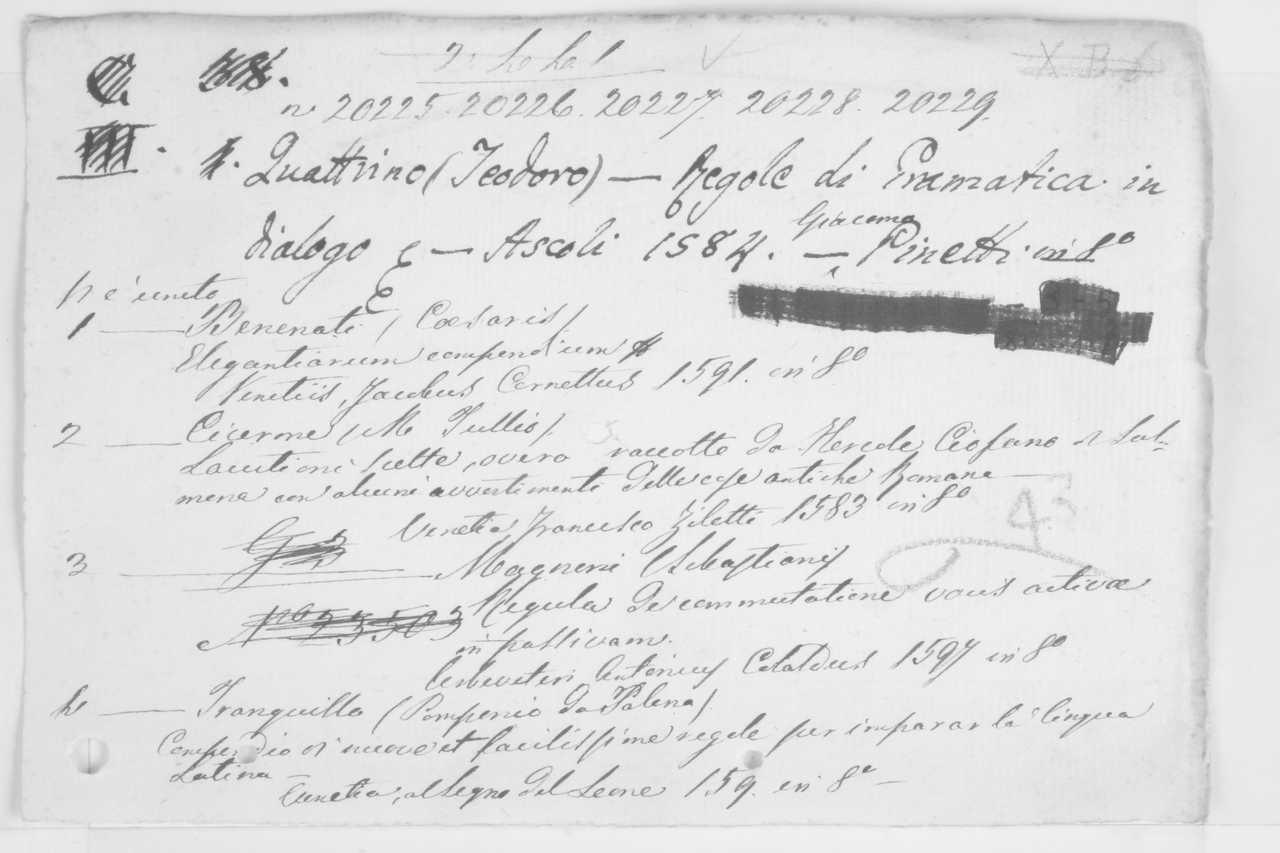 n 20225. 20226. 20227. 20228. 20229.
Quattrino (Teodoro) — Regole di Gramatica in
Giacomo
dialogo — Ascoli 1584. — Pinetti in 8º
Vi è unito
1 — Benenati (Cæsaris)
Elegantiarum compendium
Venetiis, Jacobus Cornettus 1591. in 8º
2 — Cicerone (M Tullio)
Locutioni scelte, overo raccolte da Hercole Ciofano di Sul-
mona con alcuni avvertimenti delle cose antiche Romane —
Venetia Francesco Ziletti 1583 in 8º
43
3 — Magneni (Sebastiani)
Nº 23503
Regula de commutatione vocis activæ
in passivam.
Antonius 1597 in 8º
4 — Tranquillo (Pomponio da Palena)
Compendio di nuove et facilissime regole per imparar la lingua
Latina —
Venetia, al segno del Leone 159. in 8º —